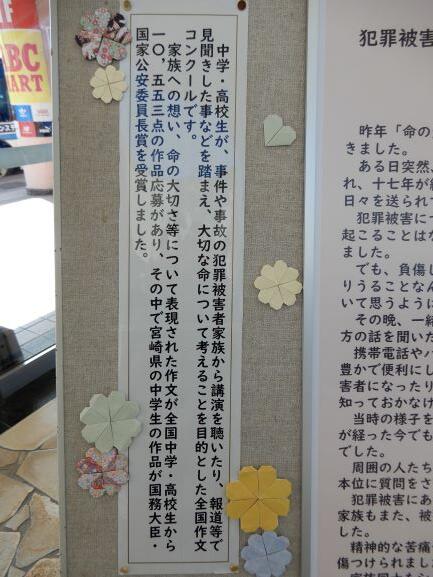 中学・高校生が、事件や事故の犯罪被害者家族から講演を聴いたり、報道等で
見聞きした事などを踏まえ、大切な命について考えることを目的とした全国作文
コンクールです。
家族への想い、命の大切さ等について表現された作文が全国中学・高校生から
一〇、五五三点の作品応募があり、その中で宮崎県の中学生の作品が国務大臣・
国家公安委員長賞を受賞しました。
犯罪被害
昨年「命の
きました。
ある日突然、
れ、十七年が経
日々を送られて
犯罪被害に
起こることはな
ました。
でも、負傷し
りうることなん
いて思うように
その晩、一緒
方の話を聞いた
携帯電話やパ
豊かで便利にし
害者になったり
知っておかなけ
当時の様子を
が経った今でも
でした。
周囲の人たち
本位に質問をさ
犯罪被害にあ
家族もまた、被
した。
精神的な苦痛
傷つけられまし
ABC
MART